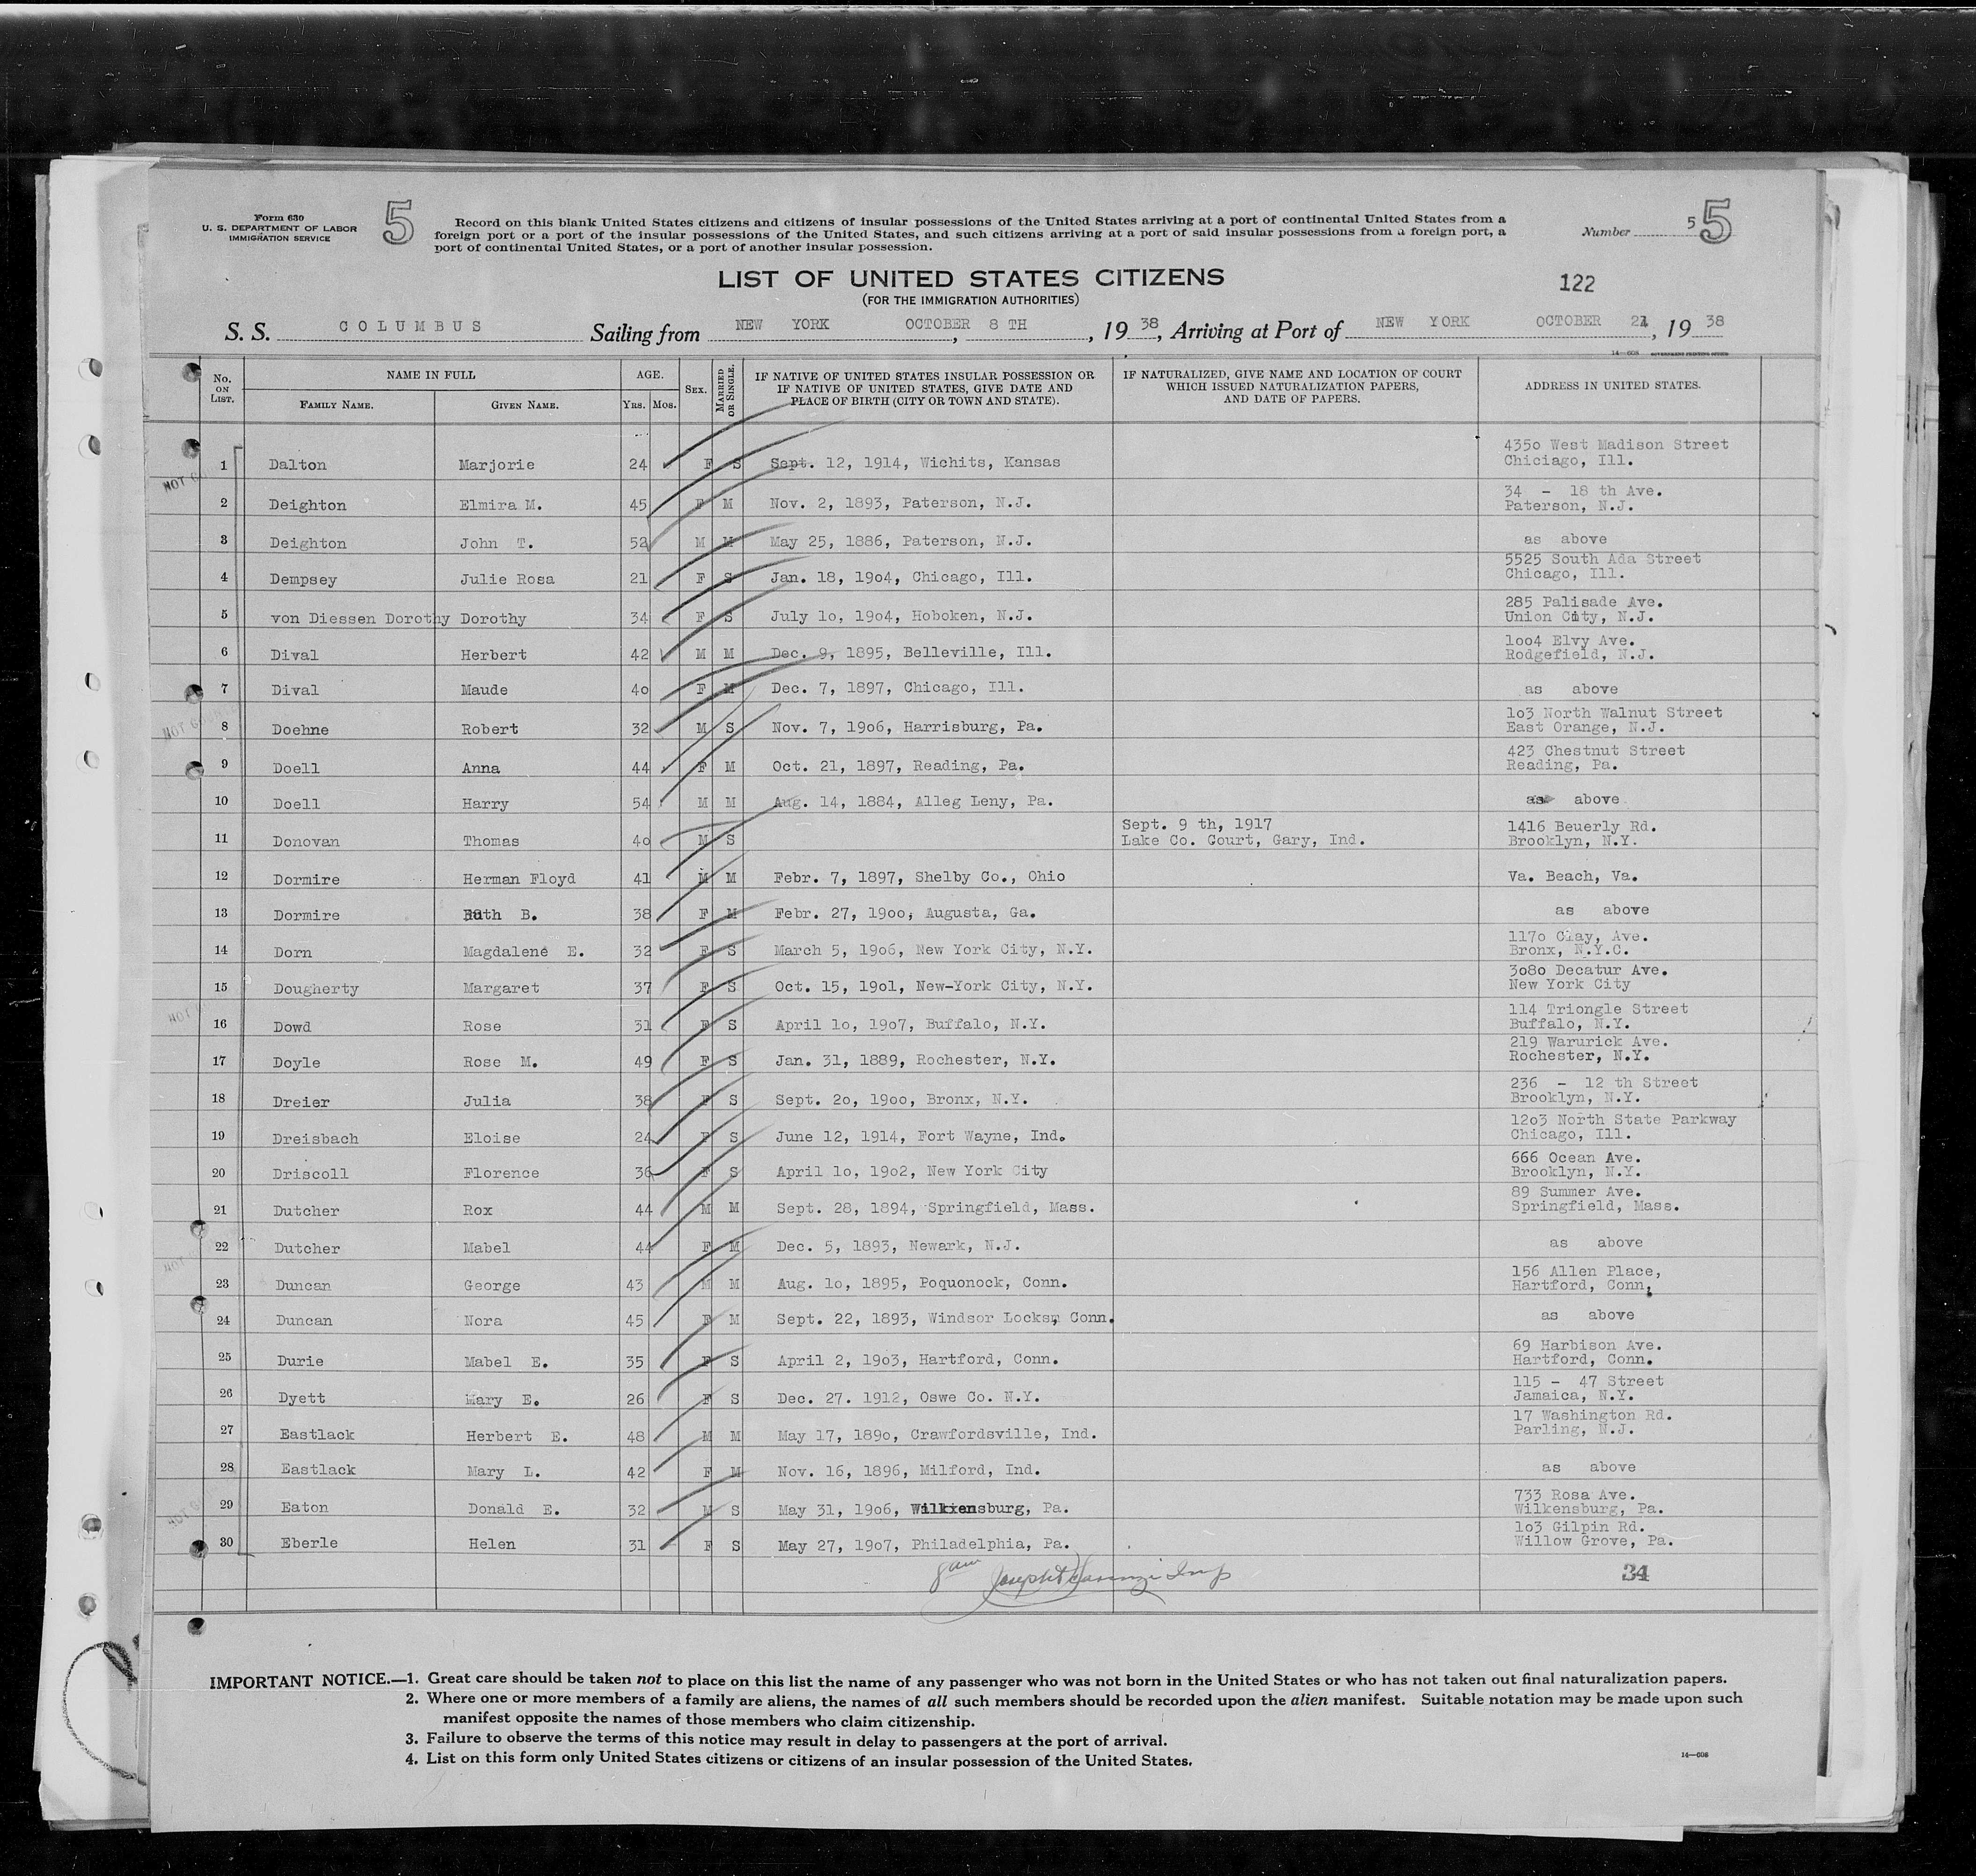 Form 630
U. S. DEPARTMENT OF LABOR
IMMIGRATION SERVICE
5
Record on this blank United States citizens and citizens of insular possessions of the United States arriving at a port of continental United States from a
foreign port or a port of the insular possessions of the United States, and such citizens arriving at a port of said insular possessions from a foreign port, a
port of continental United States, or a port of another insular possession.
Number 5 5
LIST OF UNITED STATES CITIZENS
(FOR THE IMMIGRATION AUTHORITIES)
122
S. S. COLUMBUS Sailing from NEW YORK, OCTOBER 8 TH, 1938, Arriving at Port of NEW YORK OCTOBER 21, 1938
14—608 GOVERNMENT PRINTING OFFICE
No. ON LIST. NAME IN FULL FAMILY NAME. GIVEN NAME. AGE. YRS. MOS. SEX. MARRIED OR SINGLE. IF NATIVE OF UNITED STATES INSULAR POSSESSION OR IF NATIVE OF UNITED STATES, GIVE DATE AND PLACE OF BIRTH (CITY OR TOWN AND STATE). IF NATURALIZED, GIVE NAME AND LOCATION OF COURT WHICH ISSUED NATURALIZATION PAPERS, AND DATE OF PAPERS. ADDRESS IN UNITED STATES.
1 Dalton Marjorie 24 F S Sept. 12, 1914, Wichits, Kansas 435o West Madison Street Chiciago, Ill.
2 Deighton Elmira M. 45 F M Nov. 2, 1893, Paterson, N.J. 34 - 18 th Ave. Paterson, N.J.
3 Deighton John T. 52 M M May 25, 1886, Paterson, N.J. as above
4 Dempsey Julie Rosa 21 F S Jan. 18, 19o4, Chicago, Ill. 5525 South Ada Street Chicago, Ill.
5 von Diessen Dorothy Dorothy 34 F S July 1o, 19o4, Hoboken, N.J. 285 Palisade Ave. Union City, N.J.
6 Dival Herbert 42 M M Dec. 9, 1895, Belleville, Ill. 1oo4 Elvy Ave. Rodgefield, N.J.
7 Dival Maude 4o F M Dec. 7, 1897, Chicago, Ill. as above
8 Doehne Robert 32 M S Nov. 7, 19o6, Harrisburg, Pa. 1o3 North Walnut Street East Orange, N.J.
9 Doell Anna 44 F M Oct. 21, 1897, Reading, Pa. 423 Chestnut Street Reading, Pa.
10 Doell Harry 54 M M Aug. 14, 1884, Alleg Leny, Pa. as above
11 Donovan Thomas 4o M S Sept. 9 th, 1917 Lake Co. Court, Gary, Ind. 1416 Beuerly Rd. Brooklyn, N.Y.
12 Dormire Herman Floyd 41 M M Febr. 7, 1897, Shelby Co., Ohio Va. Beach, Va.
13 Dormire Ruth B. 38 F M Febr. 27, 19oo, Augusta, Ga. as above
14 Dorn Magdalene E. 32 F S March 5, 19o6, New York City, N.Y. 117o Clay, Ave. Bronx, N.Y.C.
15 Dougherty Margaret 37 F S Oct. 15, 19o1, New-York City, N.Y. 3o8o Decatur Ave. New York City
16 Dowd Rose 31 F S April 1o, 19o7, Buffalo, N.Y. 114 Triongle Street Buffalo, N.Y.
17 Doyle Rose M. 49 F S Jan. 31, 1889, Rochester, N.Y. 219 Warurick Ave. Rochester, N.Y.
18 Dreier Julia 38 F S Sept. 2o, 19oo, Bronx, N.Y. 236 - 12 th Street Brooklyn, N.Y.
19 Dreisbach Eloise 24 F S June 12, 1914, Fort Wayne, Ind. 12o3 North State Parkway Chicago, Ill.
20 Driscoll Florence 36 F S April 1o, 19o2, New York City 666 Ocean Ave. Brooklyn, N.Y.
21 Dutcher Rox 44 M M Sept. 28, 1894, Springfield, Mass. 89 Summer Ave. Springfield, Mass.
22 Dutcher Mabel 44 F M Dec. 5, 1893, Newark, N.J. as above
23 Duncan George 43 M M Aug. 1o, 1895, Poquonock, Conn. 156 Allen Place, Hartford, Conn,
24 Duncan Nora 45 F M Sept. 22, 1893, Windsor Locks, Conn. as above
25 Durie Mabel E. 35 F S April 2, 19o3, Hartford, Conn. 69 Harbison Ave. Hartford, Conn.
26 Dyett Mary E. 26 F S Dec. 27. 1912, Oswe Co. N.Y. 115 - 47 Street Jamaica, N.Y.
27 Eastlack Herbert E. 48 M M May 17, 189o, Crawfordsville, Ind. 17 Washington Rd. Parling, N.J.
28 Eastlack Mary L. 42 F M Nov. 16, 1896, Milford, Ind. as above
29 Eaton Donald E. 32 M S May 31, 19o6, Wilkiensburg, Pa. 733 Rosa Ave. Wilkensburg, Pa.
30 Eberle Helen 31 F S May 27, 19o7, Philadelphia, Pa. 1o3 Gilpin Rd. Willow Grove, Pa.
34
IMPORTANT NOTICE.—1. Great care should be taken not to place on this list the name of any passenger who was not born in the United States or who has not taken out final naturalization papers.
2. Where one or more members of a family are aliens, the names of all such members should be recorded upon the alien manifest. Suitable notation may be made upon such
manifest opposite the names of those members who claim citizenship.
3. Failure to observe the terms of this notice may result in delay to passengers at the port of arrival.
4. List on this form only United States citizens or citizens of an insular possession of the United States.
14—608